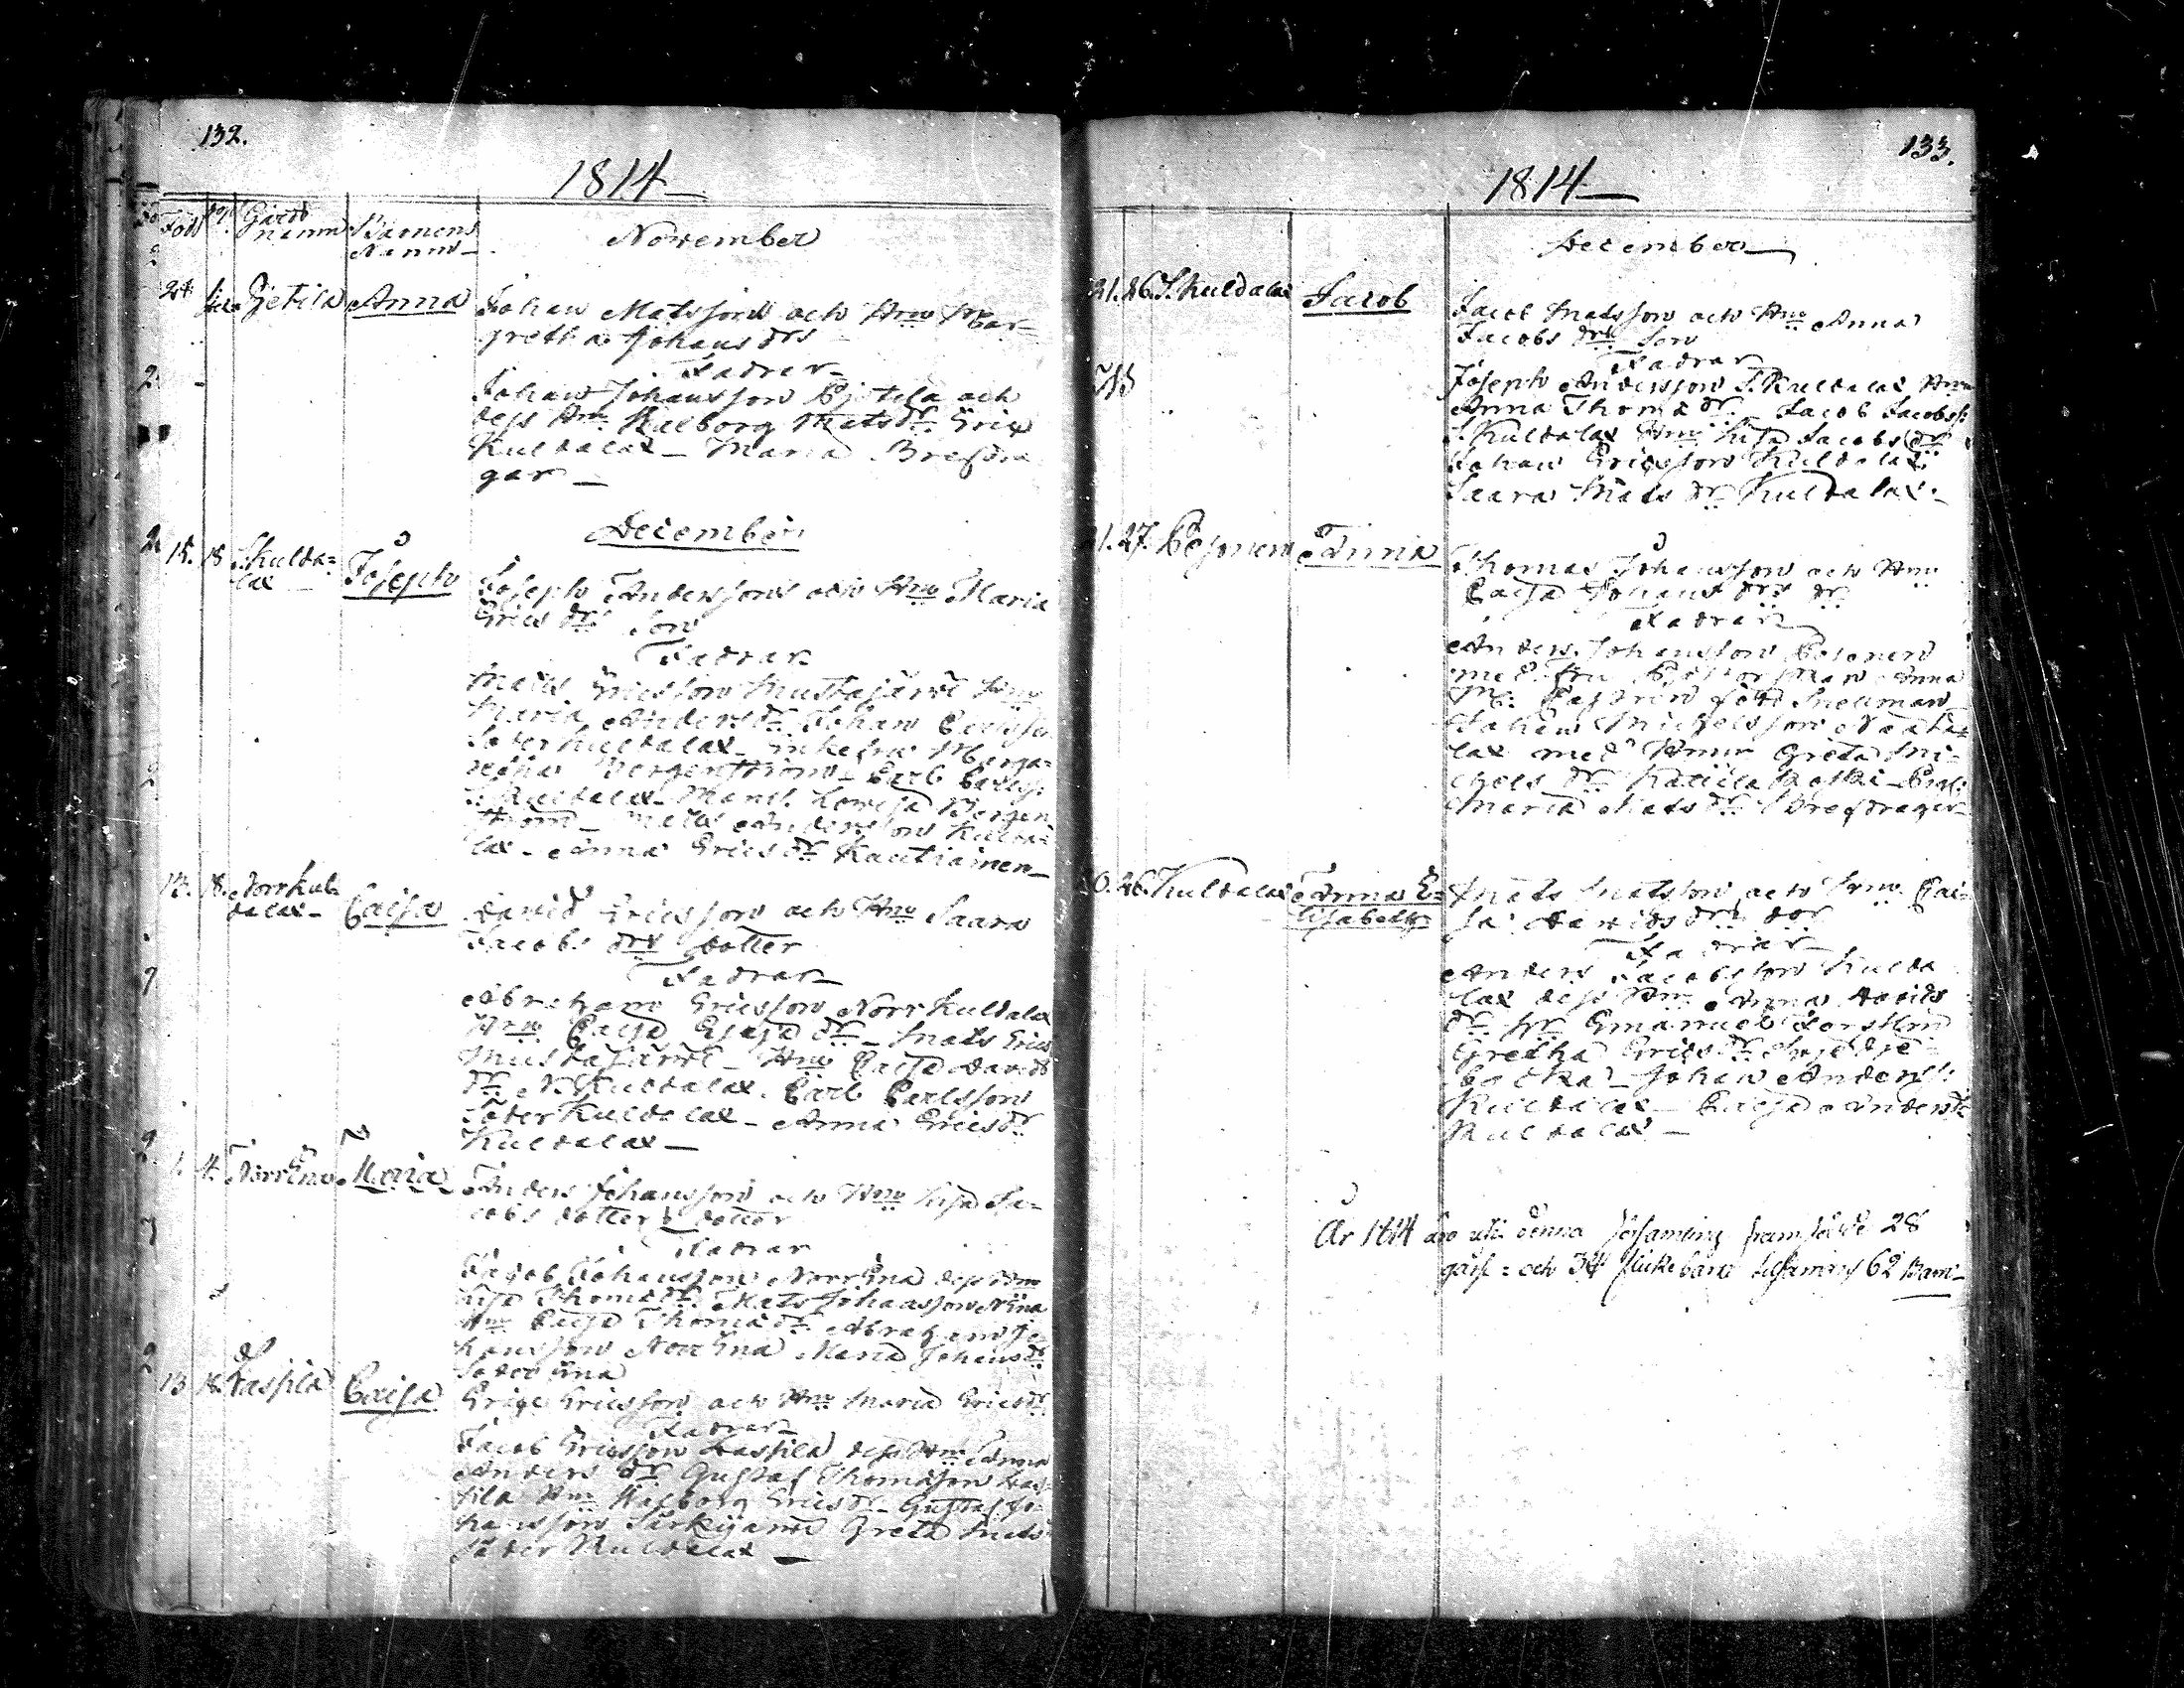 132.
1814
Föd Gårds namn Barnens Namn
November
24 Gjetila Anna Johan Matsson och Hu Mar-
gretha Johans drs
Fadrar
Johan Johansson Gjetila och
dess Hu Walborg Mats dr Eric
Kuldalax Maria Brefdra
gar
December
15. 18 S. Kulda=
lax Joseph
Joseph Andersson och Hu Maria
Erics drs Son
Fadrar
Mats Ericsson Mustajärvi Hu
Maria Anders dr Johan Carlsson
Söder Kuldalax Enkefru Marga-
retha Bergenström Carl Carlss:
S. Kuldalax Mams. Lovisa Bergen
ström Mats Andersson Kulda-
lax Anna Erics dr Kautiainen
13. 18. Norr Kul-
dalax Caisa David Ericsson och Hu Saara
Jacobs drs dotter
Fadrar
Abraham Ericsson Norr Kuldalax
Hu Caisa Esaja dr Mats Erics
Mustajärvi Hu Caisa Davids
dr N. Kuldalax. Carl Carlsson
Söder Kuldalax Anna Erics dr
Kuldalax
1. 4. Norrëna Maria Anders Johansson och Hu Lisa Ja-
cobs dotters dotter
Fadrar
Jacob Johansson Norrëna dess Hu
Lisa Thomas dr. Mats Johansson N ëna
Hu Caisa Thomas dr Abraham Jo
hansson Norrëna Maria Johans dr
Söder ëna
13 18. Lassila Caisa Eric Ericsson och Hu Maria Erics dr
Fadrar
Jacob Ericsson Lassila dess Hu Anna
Anders dr Gustaf Thomasson Las-
sila Hu Walborg Erics dr Gustaf Jo-
hansson Särkijärvi Greta Mats
Söder Kuldalax
133.
1814
December
21. 26. S. Kuldalax Jacob Jacob Matsson och Hu Anna
Jacobs drs Son
Fadrar
Joseph Andersson S. Kuldalax Hu
Anna Thomas dr Jacob Jacobss:
S. Kuldalax Hu Lisa Jacobs dr
Johan Ericsson Kuldalax
Saara Mats dr Kuldalax
21. 27. Pesonen Anna Thomas Johansson och Hu
Caisa Johans drs dr
Fadrar
Anders Johansson Pesonen
med Fru Anna
M: född Snellman
Johan Michelsson
lax med Hu Greta Mi-
chels dr
Maria Mats dr Brefdragar
26. Kuldalax Anna E-
lisabeth
Mats Matsson och Hu Cai-
sa Davids drs dor
Fadrar
Anders Jacobsson Kulda
lax dess Hu Anna Davids
dr Hr Emanuel Forsström
Gretha Erics dr
Johan Anderss:
Kuldalax Caisa Anders dr
Kuldalax
År 1814 äro uti denna församling framfödde 28
goss- och 34 flickebarn tilsammans 62 Barn